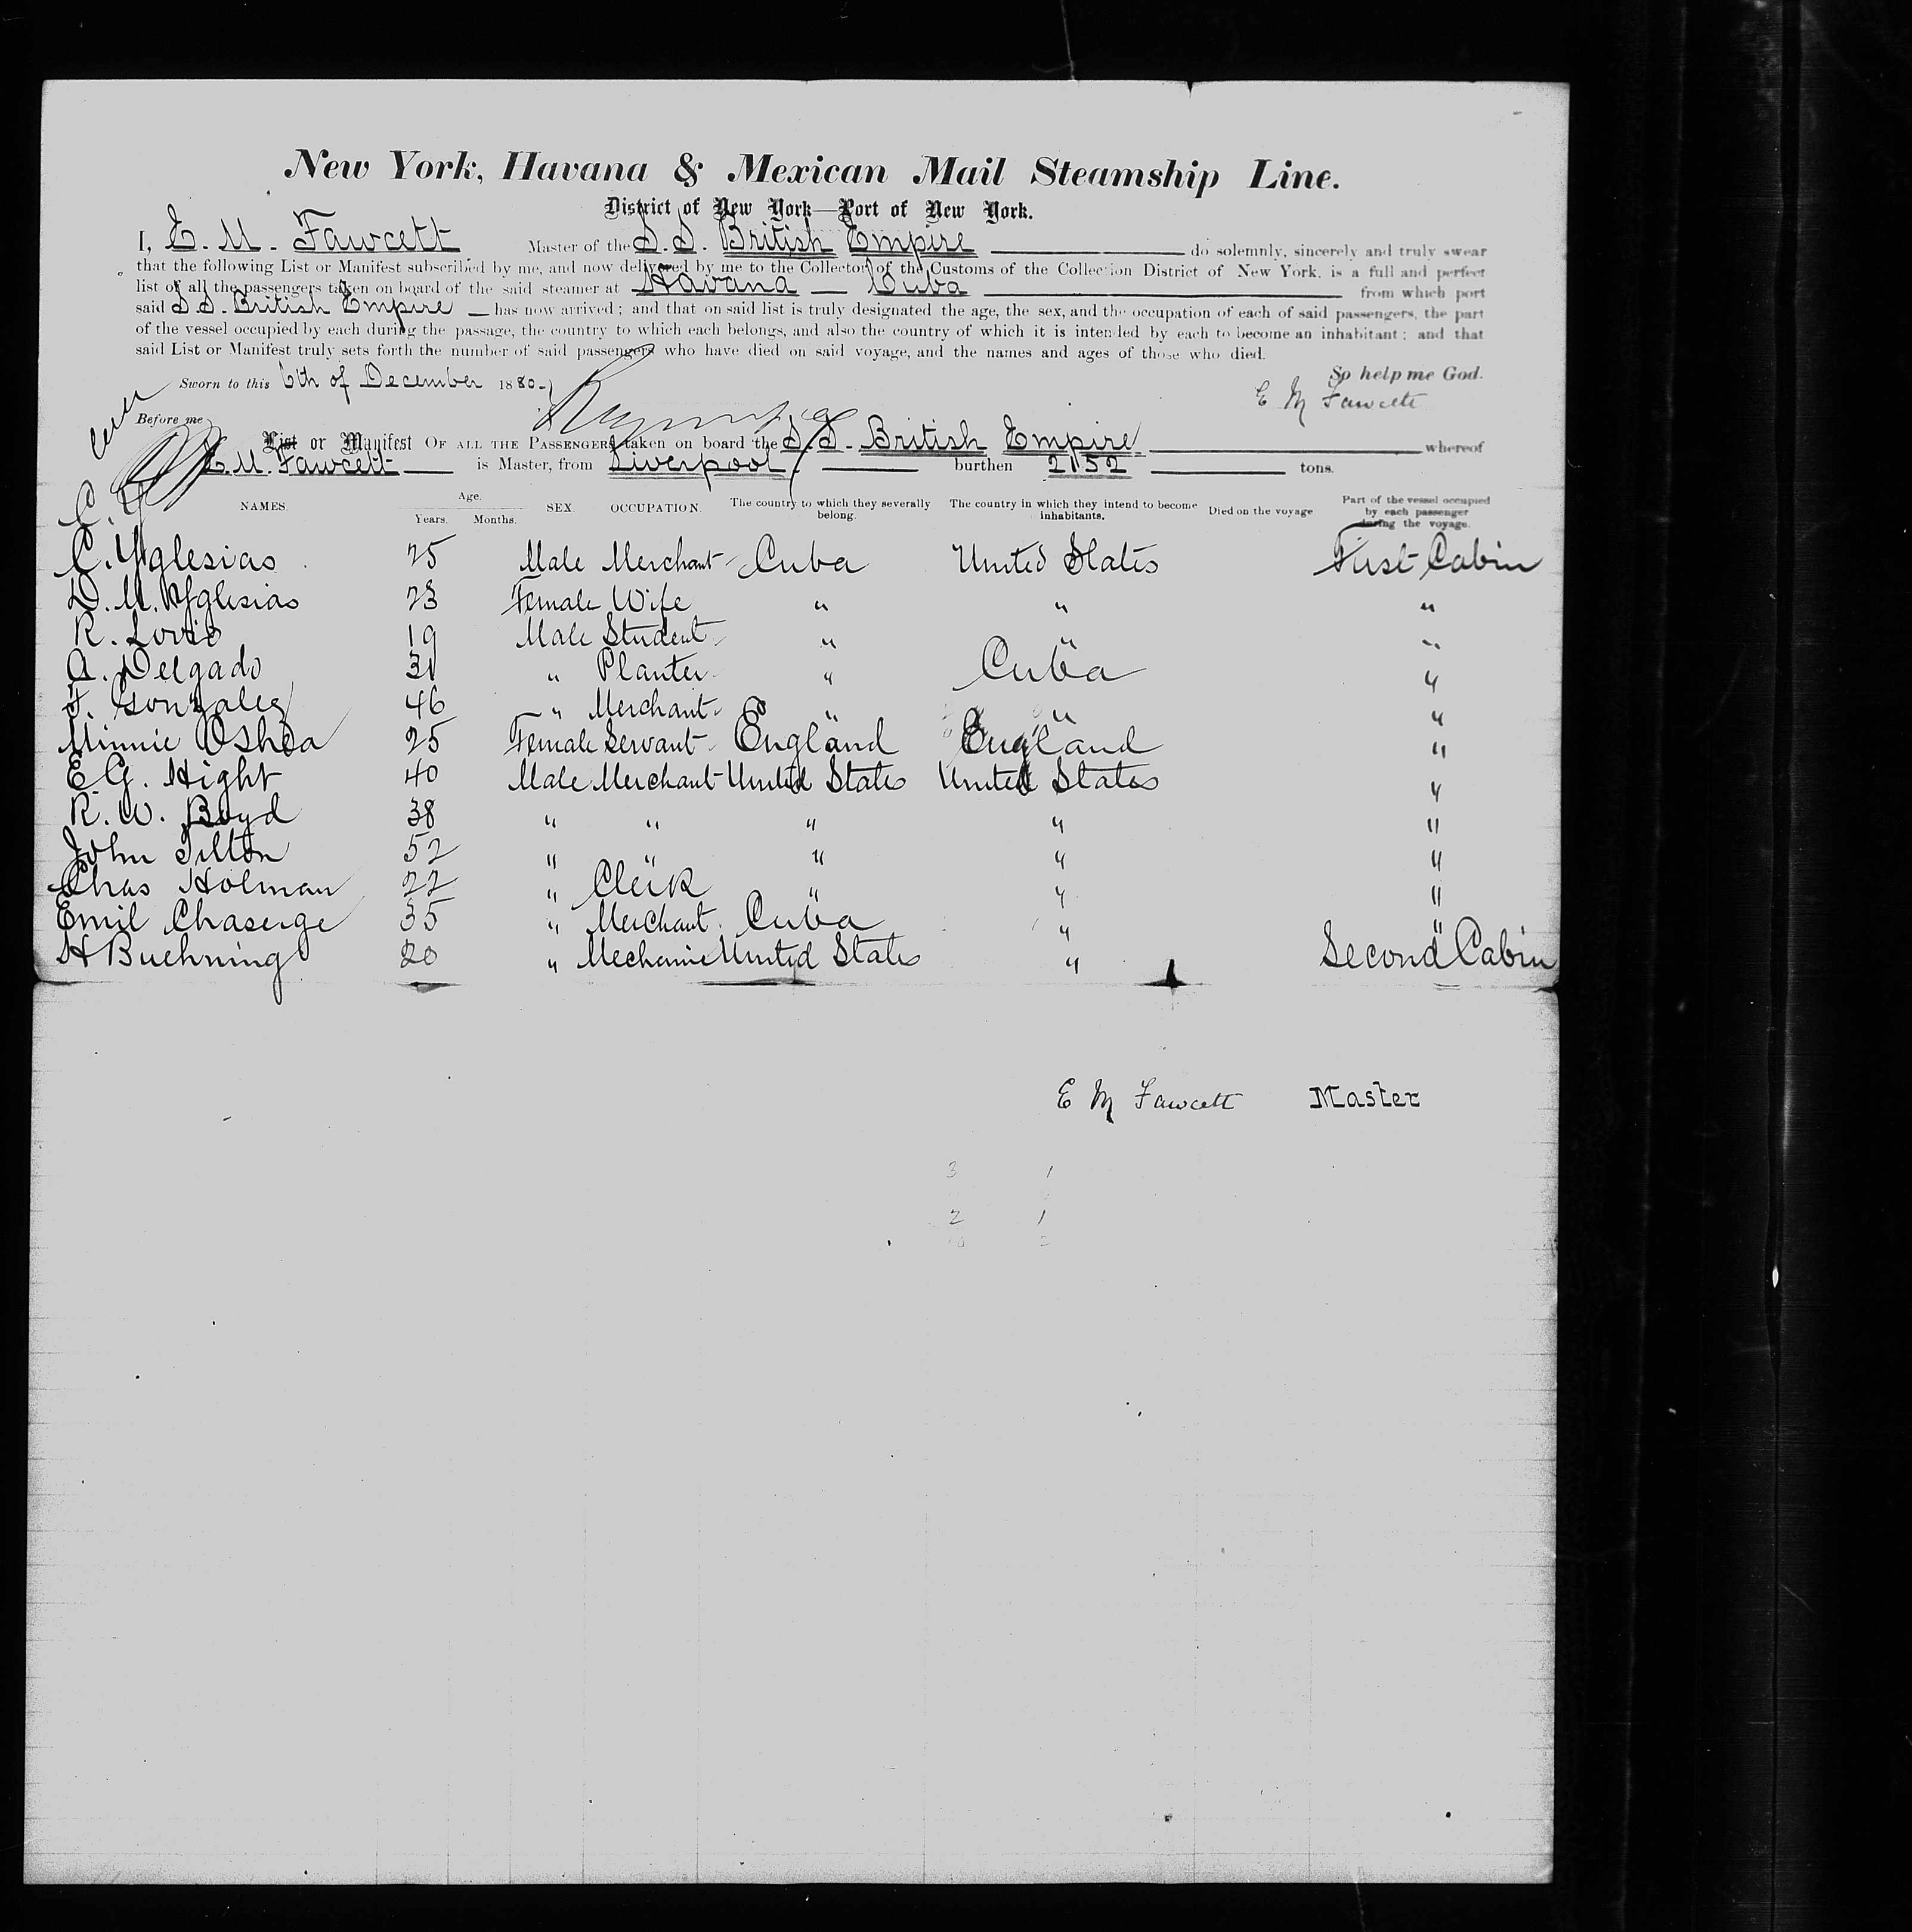 New York, Havana & Mexican Mail Steamship Line.
District of New York—Port of New York.
I, E. M. Fawcett Master of the S.S. British Empire do solemnly, sincerely and truly swear
that the following List or Manifest subscribed by me, and now delivered by me to the Collector of the Customs of the Collection District of New York, is a full and perfect
list of all the passengers taken on board of the said steamer at Havana — Cuba from which port
said S.S. British Empire — has now arrived; and that on said list is truly designated the age, the sex, and the occupation of each of said passengers, the part
of the vessel occupied by each during the passage, the country to which each belongs, and also the country of which it is intended by each to become an inhabitant; and that
said List or Manifest truly sets forth the number of said passengers who have died on said voyage, and the names and ages of those who died.
So help me God.
Sworn to this 6th of December 1880
E M Fawcett
Before me
List or Manifest OF ALL THE PASSENGERS taken on board the S.S. British Empire whereof
E. M. Fawcett is Master, from Liverpool burthen 2152 tons.
NAMES. Age. Years. Months. SEX. OCCUPATION. The country to which they severally belong. The country in which they intend to become inhabitants. Died on the voyage Part of the vessel occupied by each passenger during the voyage.
C. Y
C. Yglesias 25 Male Merchant Cuba United States First Cabin
D. M. Yglesias 23 Female Wife " " "
R. 19 Male Student " " "
A. Delgado 31 " Planter " Cuba "
F. Gonzalez 46 " Merchant " " "
Minnie OShea 25 Female Servant England England "
E. G. Hight 40 Male Merchant United States United States "
R. W. Boyd 38 " " " " "
John Tilton 52 " " " " "
Chas Holman 22 " Clerk " " "
Emil Chaserge 35 " Merchant Cuba " "
H Buehning 20 " Mechanic United States " Second Cabin
E M Fawcett Master
3 1
2 1